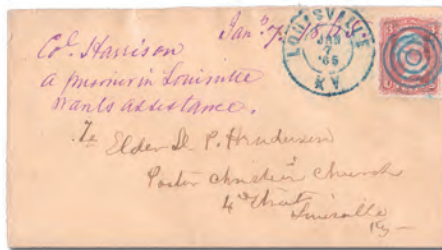 Jan 7
LOUISVILLE
JAN
7
'65
KY
Col. Harrison
a prisoner in Louisville
wants assistance.
To Elder D. P. Henderson
Pastor Christian Church
4th Street
Louisville
Ky